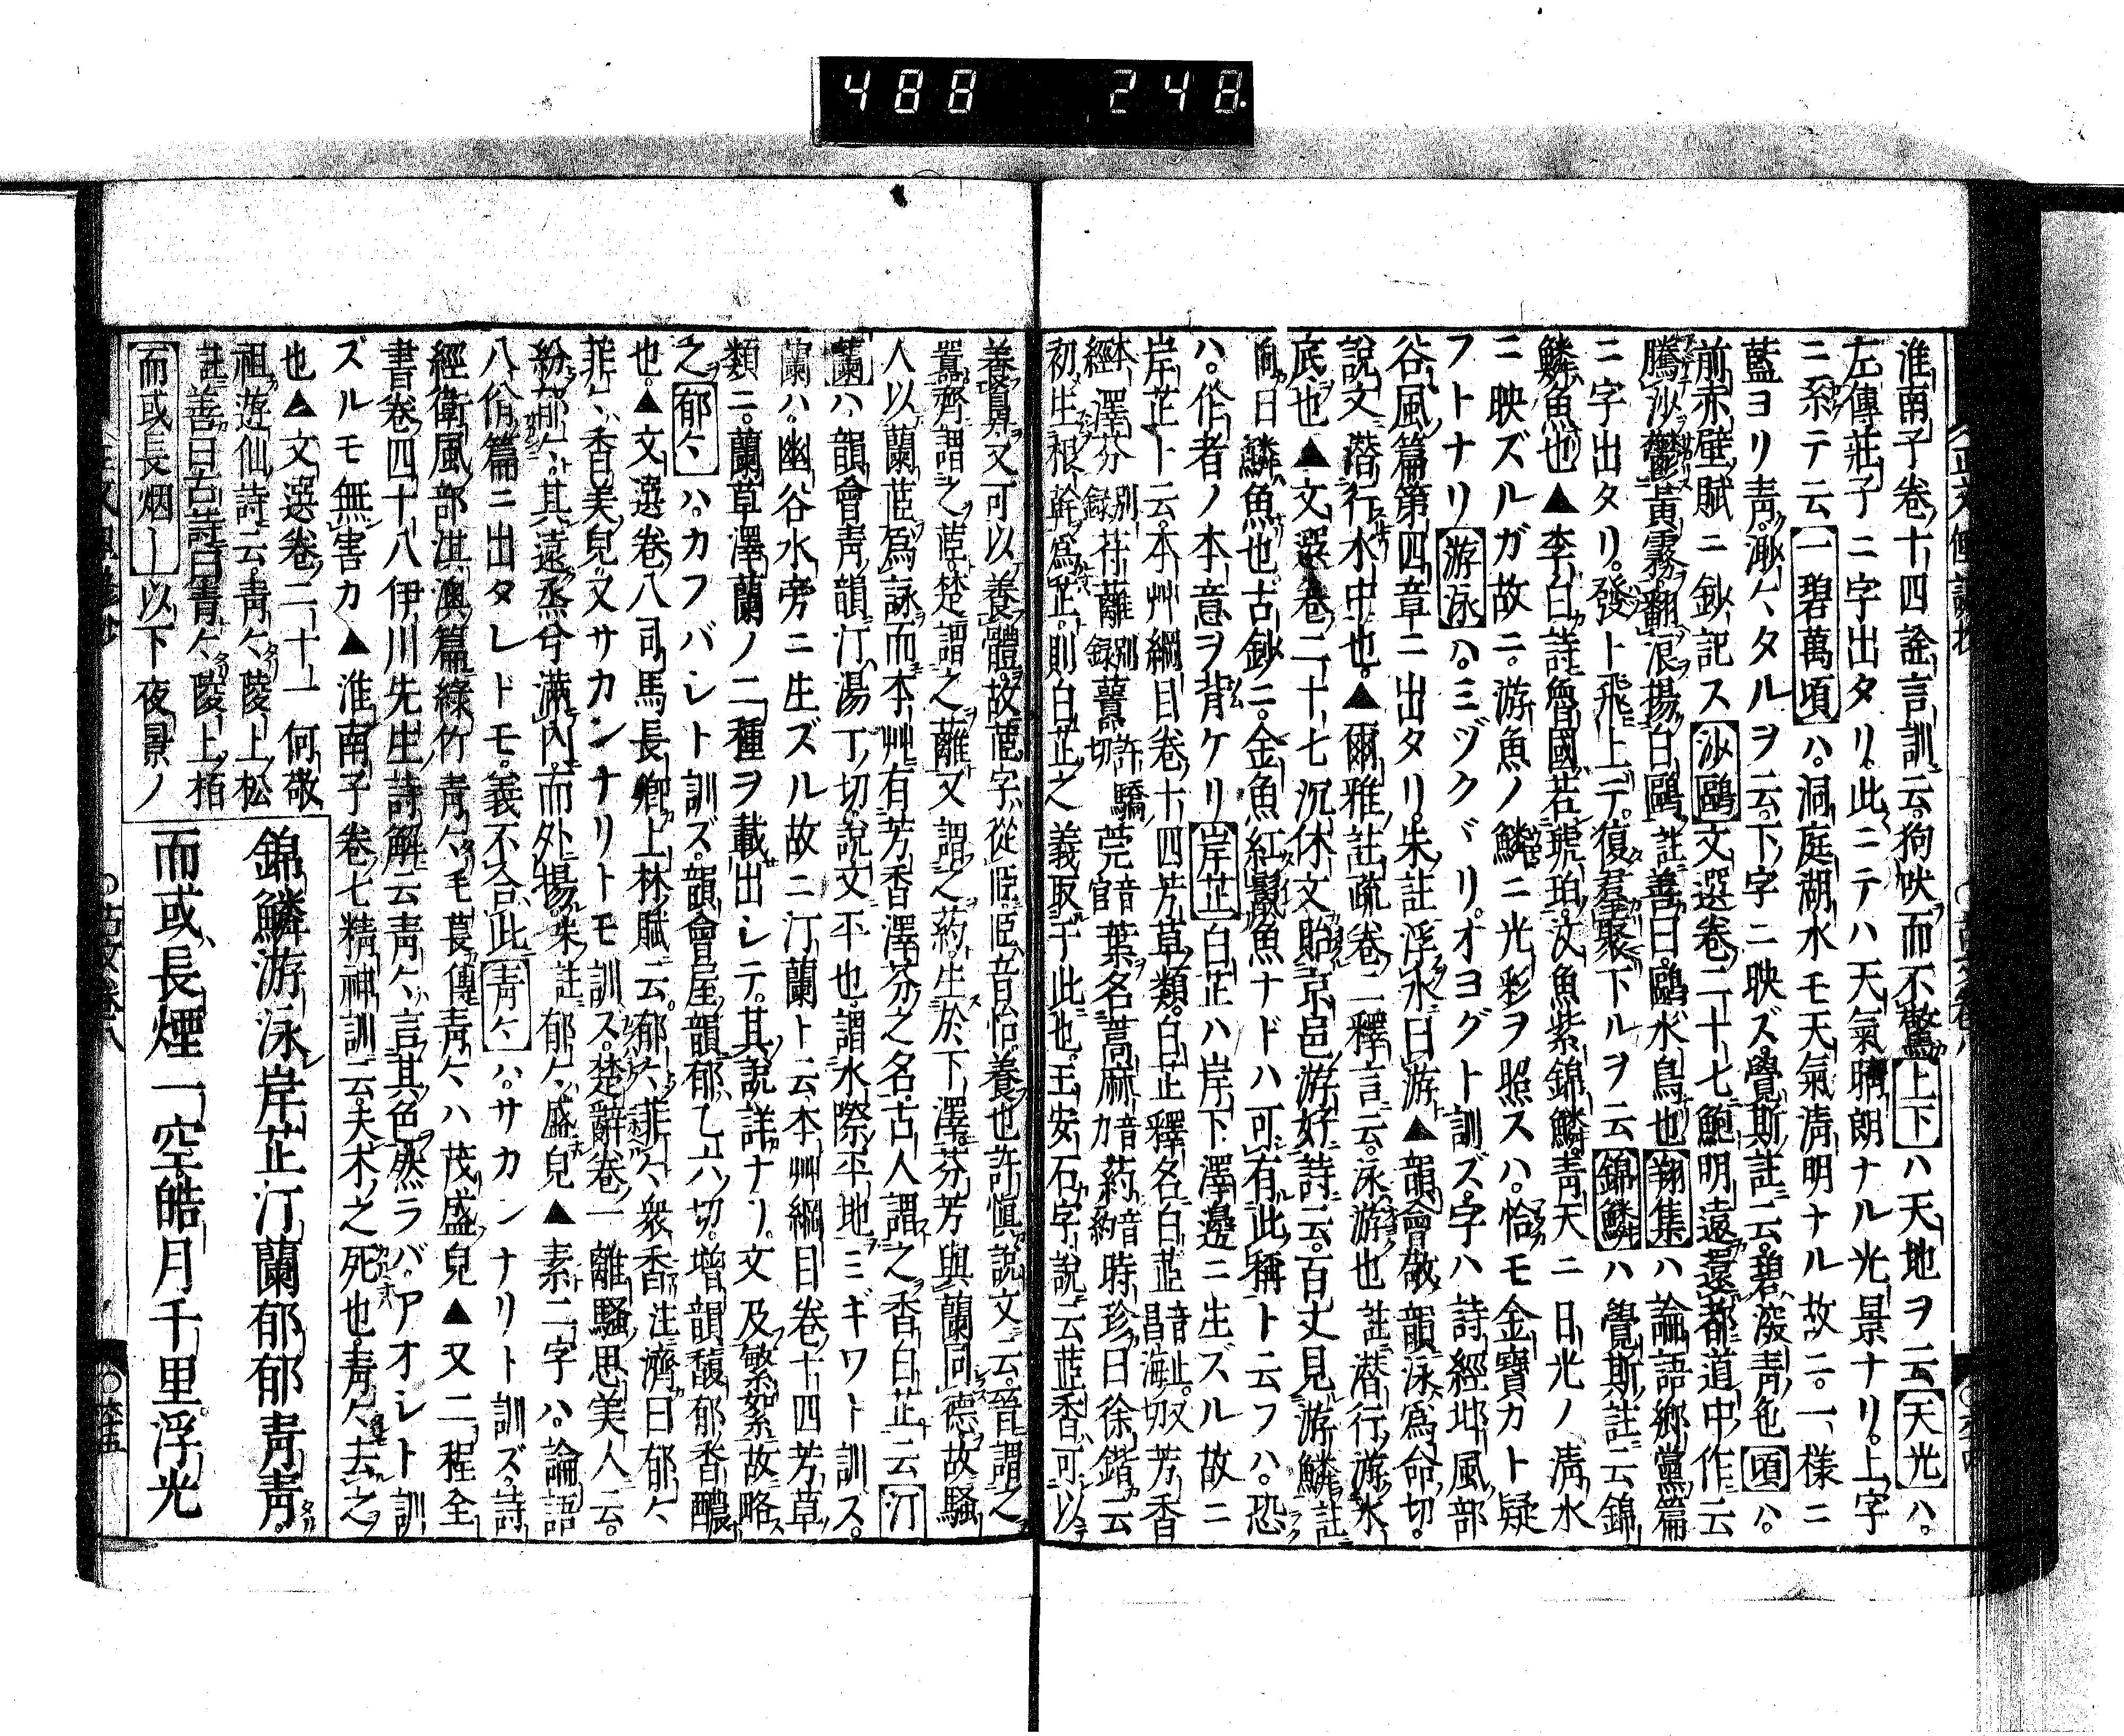 488 248
淮南子卷十四詮言訓云狗吠而不驚上下ハ天地ヲ云天光ハ。
左傳莊子ニ字出タリ。此ニテハ天氣晴朗ナル光景ナリ。上字
ニ系テ云一碧萬頃ハ。洞庭湖水モ天氣清明ナル故ニ。一樣ニ
藍ヨリ青。渺〻タルヲ云。下字ニ映ズ。覺斯註ニ云。碧深青色頃ハ。
前赤壁賦ニ鈔記ス沙鷗文選卷二十七鮑明遠還都道中作云
騰沙鬱黃霧。翻浪揚白鷗註善曰。鷗水鳥也翔集ハ論語鄉黨篇
ニ字出タリ。發ト飛上テ。復羣聚下ルヲ云錦鱗ハ覺斯註云錦
鱗魚也▲李白詩魯國若琥珀。汶魚紫錦鱗。青天ニ日光ノ清水
ニ映ズルガ故ニ。游魚ノ鱗ニ光彩ヲ照スハ。恰モ金寶カト疑
フトナリ游泳ハ。ミヅクヾリ。オヨグト訓ズ。字ハ詩經邶風部
谷風篇第四章ニ出タリ。朱註浮水曰游▲韻會敬韻泳爲命切。
說文潛行水中也。▲爾雅註疏卷二釋言云。泳游也註潛行游水
底也▲文選卷二十七沉休文貽京邑游好詩云。百丈見游鱗註
向曰鱗魚也古鈔ニ。金魚紅鬣魚ナドハ可有此稱ト云フハ。恐
ハ。作者ノ本意ヲ背ケリ岸芷白芷ハ岸下澤邊ニ生ズル故ニ
岸芷ト云。本艸綱目卷十四芳草類。白芷釋名白茝音止。又昌海切芳香
本經澤芬別錄苻蘺別錄蘴許驕切莞音官葉名蒿麻力音葯音約時珍曰徐鍇云
初生根幹爲芷。則白芷之義取于此也。王安石字說云茝香可以
養鼻又可以養體。故茝字從𦣞𦣞音怡養也許愼說文云。晉謂之
蘴齊謂之茝。楚謂之蘺又謂之葯生於下澤芬芳與蘭同德故騷
人以蘭茝爲詠而本艸有芳香澤芬之名。古人謂之香白芷云汀
蘭ハ韻會青韻汀湯丁切。說文平也。謂水際平地ミギワト訓ス。
蘭ハ。幽谷水旁ニ生ズル故ニ汀蘭ト云本艸綱目卷十四芳草
類ニ。蘭草澤蘭ノ二種ヲ載出シテ。其說詳ナリ。文及繁絮故略
之郁〻ハ。カフバシト訓ズ。韻會屋韻郁乙六切。增韻馥郁香醲
也。▲文選卷八司馬長卿上林賦云。郁〻菲〻衆香注濟曰郁〻
菲〻香美皃又サカンナリトモ訓ス。楚辭卷一離騷思美人云。
紛郁〻。其遠烝兮滿內。而外揚朱註郁〻盛皃▲素二字ハ。論語
八佾篇ニ出タレトモ。義不合此青〻ハ。サカンナリト訓ズ。詩
經衛風部淇澳篇綠竹青〻毛萇傳青〻ハ茂盛皃▲又二程全
書卷四十八伊川先生詩解云青〻言其色然ラバ。アオシト訓
ズルモ無害カ▲淮南子卷七精神訓云。夫木之死也。青〻去之
也▲文選卷二十一何敬
祖遊仙詩云。青〻陵上松
註善曰古詩曰青〻陵上栢
而或長烟ー以下夜景ノ
錦鱗游泳岸芷汀蘭郁郁青青。
而或長煙一空。皓月千里浮光